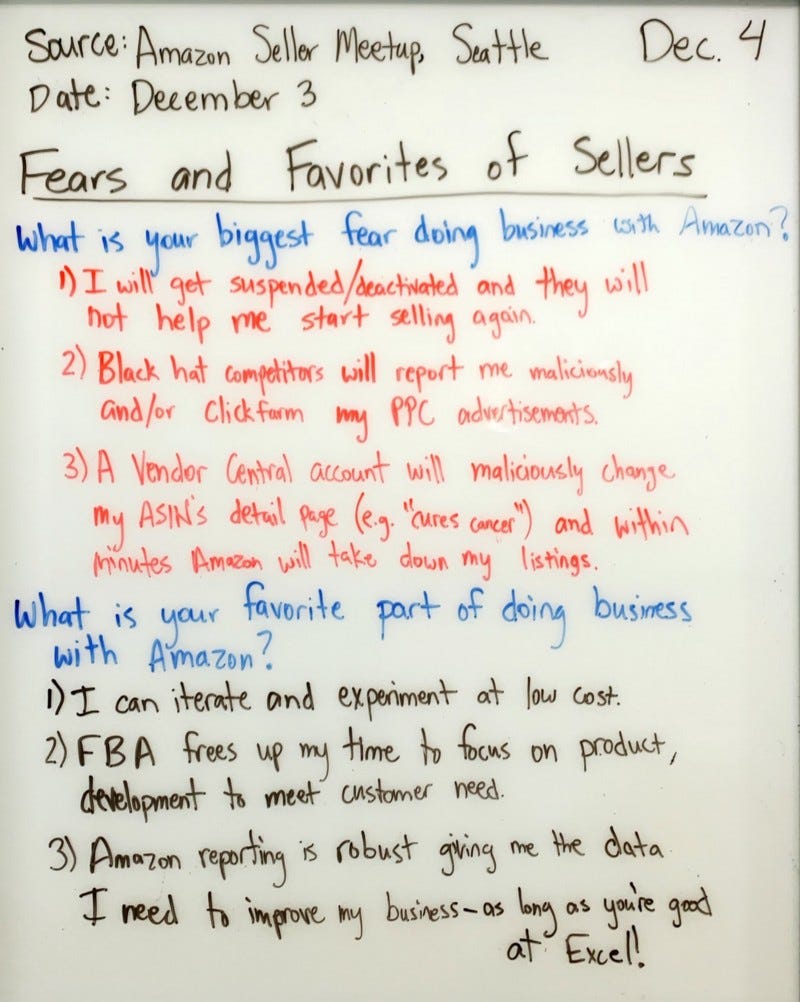 Source: Amazon Seller Meetup, Seattle Dec. 4
Date: December 3
Fears and Favorites of Sellers
What is your biggest fear doing business with Amazon?
1) I will get suspended/deactivated and they will
not help me start selling again.
2) Black hat competitors will report me maliciously
and/or Clickfarm my PPC advertisements.
3) A Vendor Central account will maliciously change
my ASIN's detail page (e.g. "cures cancer") and within
minutes Amazon will take down my listings.
What is your favorite part of doing business
with Amazon?
1) I can iterate and experiment at low cost.
2) FBA frees up my time to focus on product,
development to meet customer need.
3) Amazon reporting is robust giving me the data
I need to improve my business - as long as you're good
at Excel!